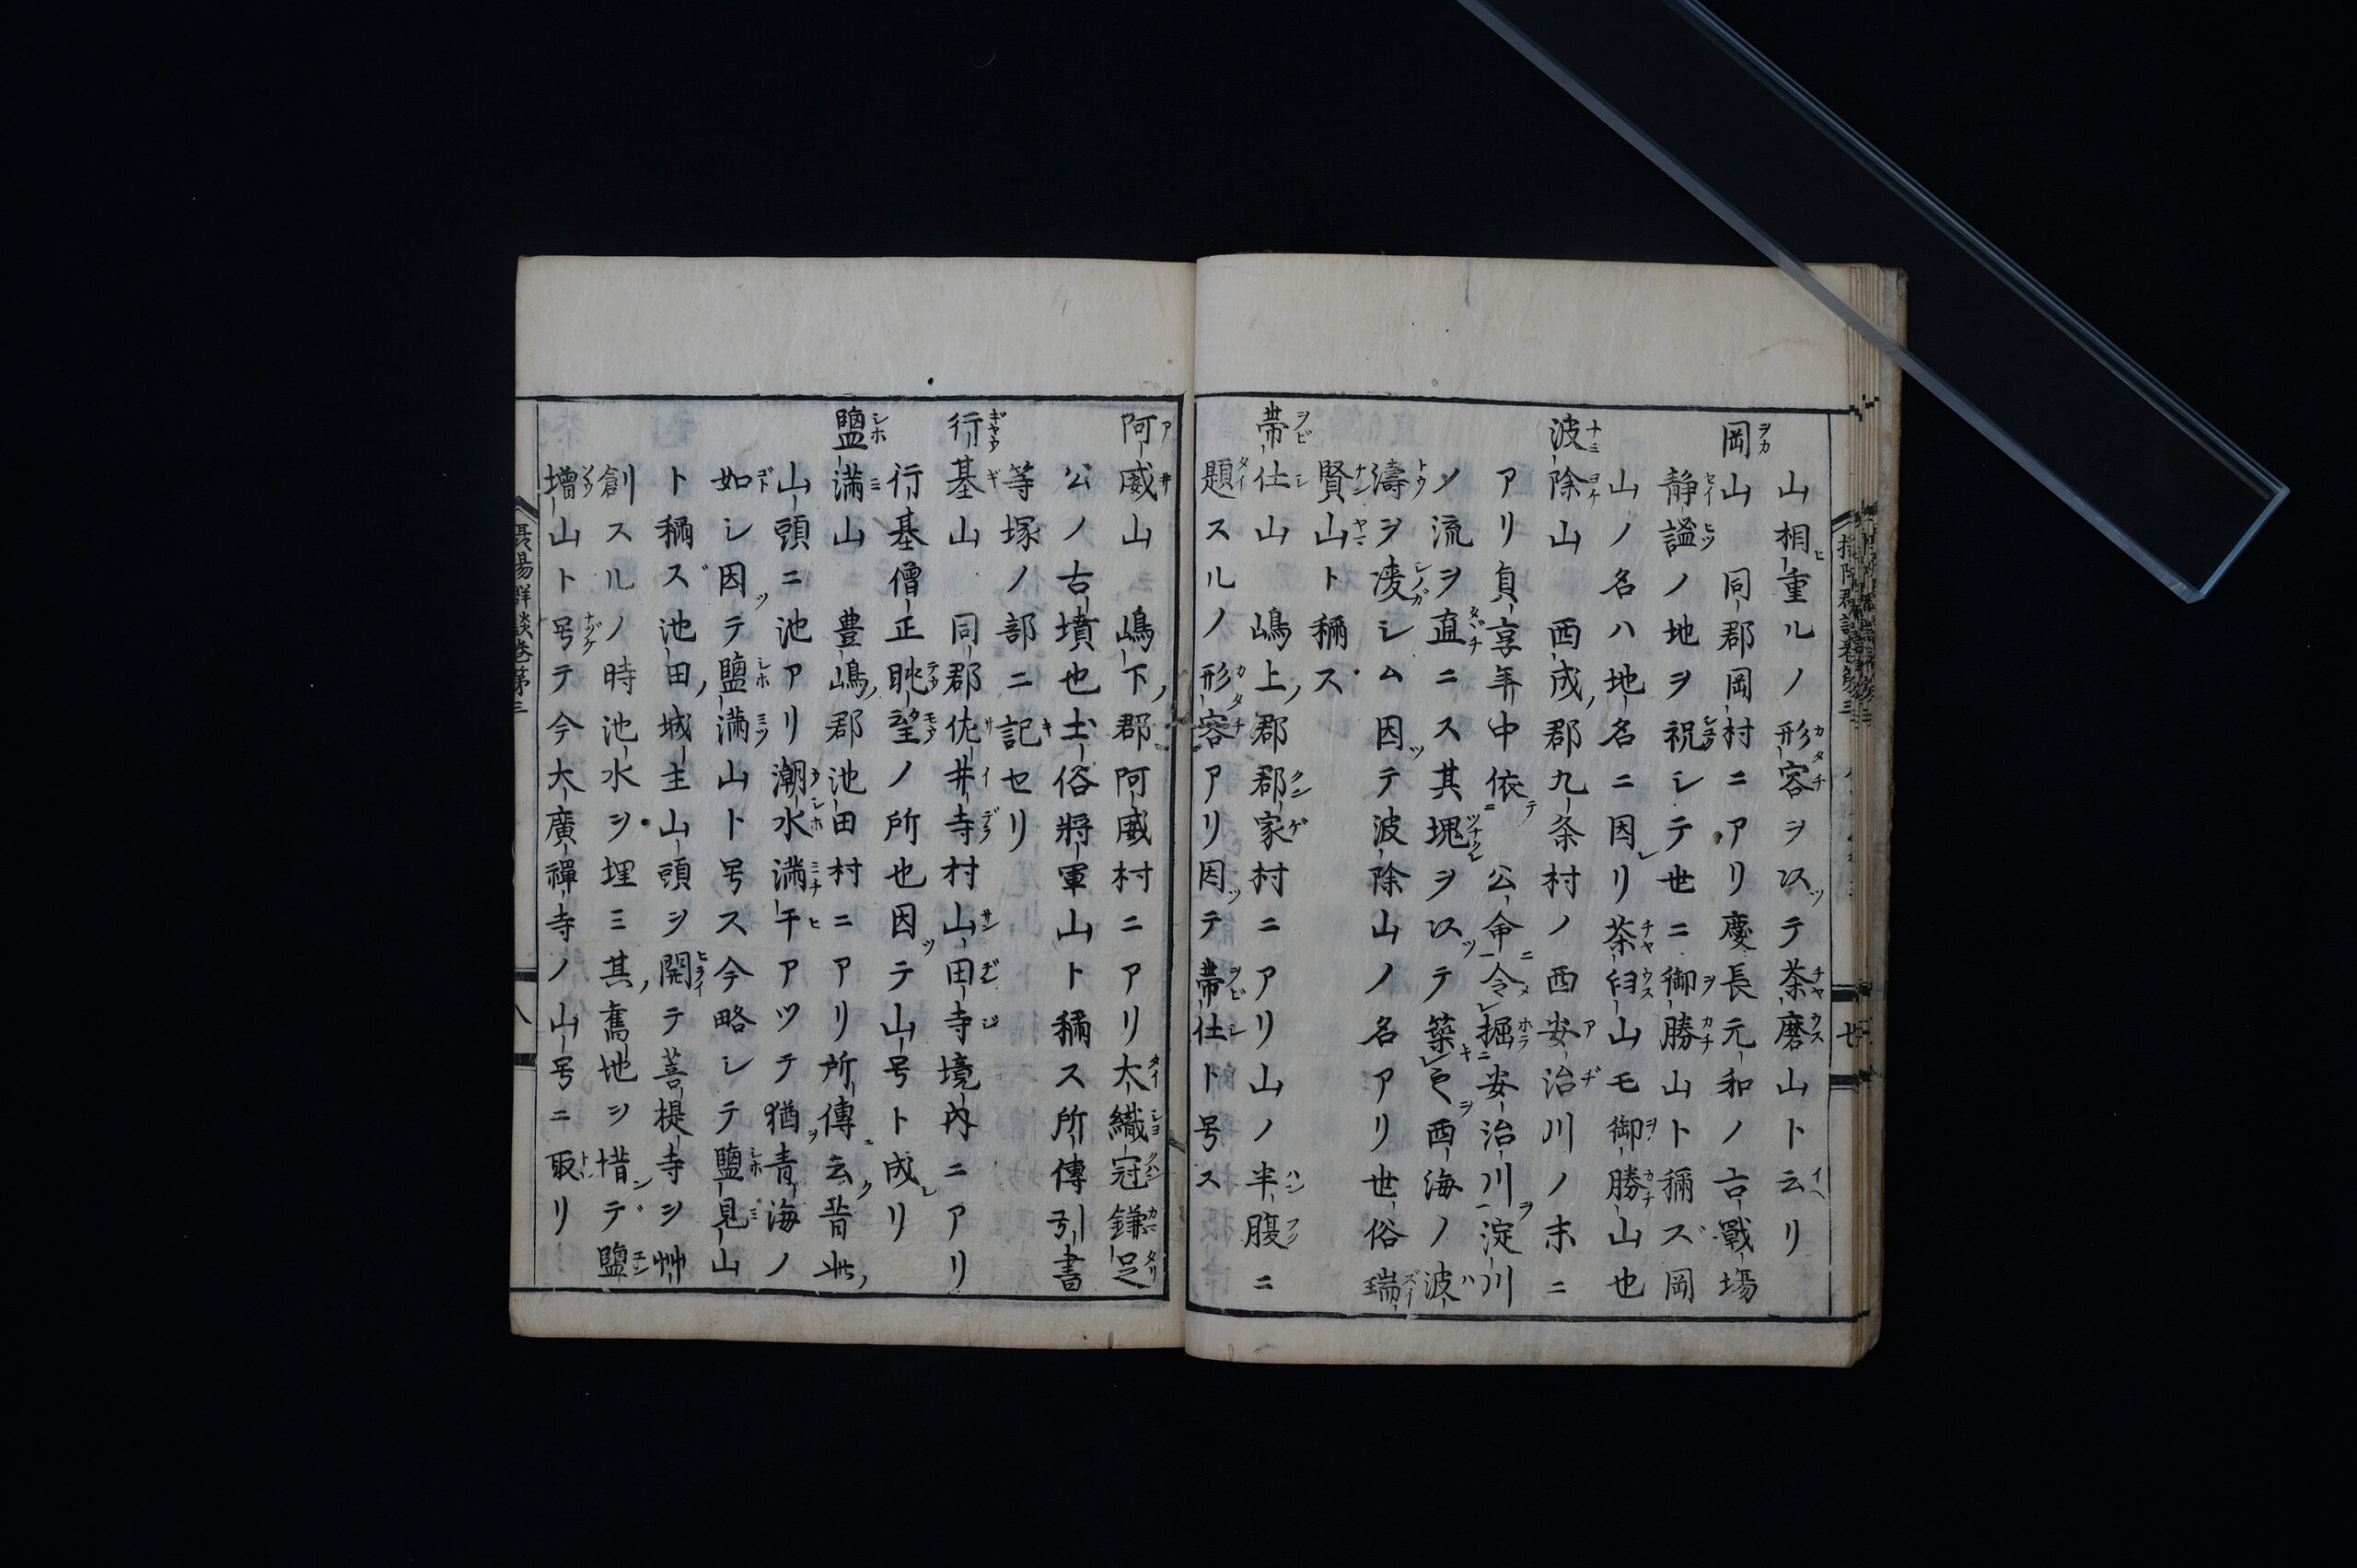 山相重ルノ形容ヲ以テ茶磨山ト云リ
岡山　同郡岡村ニアリ慶長元和ノ古戰場
静謐ノ地ヲ祝シテ世ニ御勝山ト稱ズ岡
山ノ名ハ地名ニ因リ茶臼山モ御勝山也
波除山　西成郡九条村ノ西安治川ノ末ニ
アリ貞享年中依　公命令掘安治川淀川
ノ流ヲ直ニス其塊ヲ以テ築乞西海ノ波
濤ヲ凌シム因テ波除山ノ名アリ世俗瑞
賢山ト稱ス
帯仕山　嶋上郡郡家村ニアリ山ノ半腹ニ
題スルノ形容アリ因テ帯仕ト号ス
阿威山　嶋下郡阿威村ニアリ大織冠鎌足
公ノ古墳也土俗將軍山ト稱ス所傳引書
等塚ノ部ニ記セリ
行基山　同郡佐井寺村山田寺境内ニアリ
行基僧正眺望ノ所也因テ山号ト成リ
鹽満山　豊嶋郡池田村ニアリ所傳云昔此
山頭ニ池アリ潮水満干アツテ猶青海ノ
如シ因テ鹽満山ト号ス今略シテ鹽見山
ト稱ズ池田城主山頭ヲ開テ菩提寺ヲ艸
創スルノ時池水ヲ埋ミ其舊地ヲ惜デ鹽
増山ト号テ今大廣禪寺ノ山号ニ取リ
群談巻第三
八